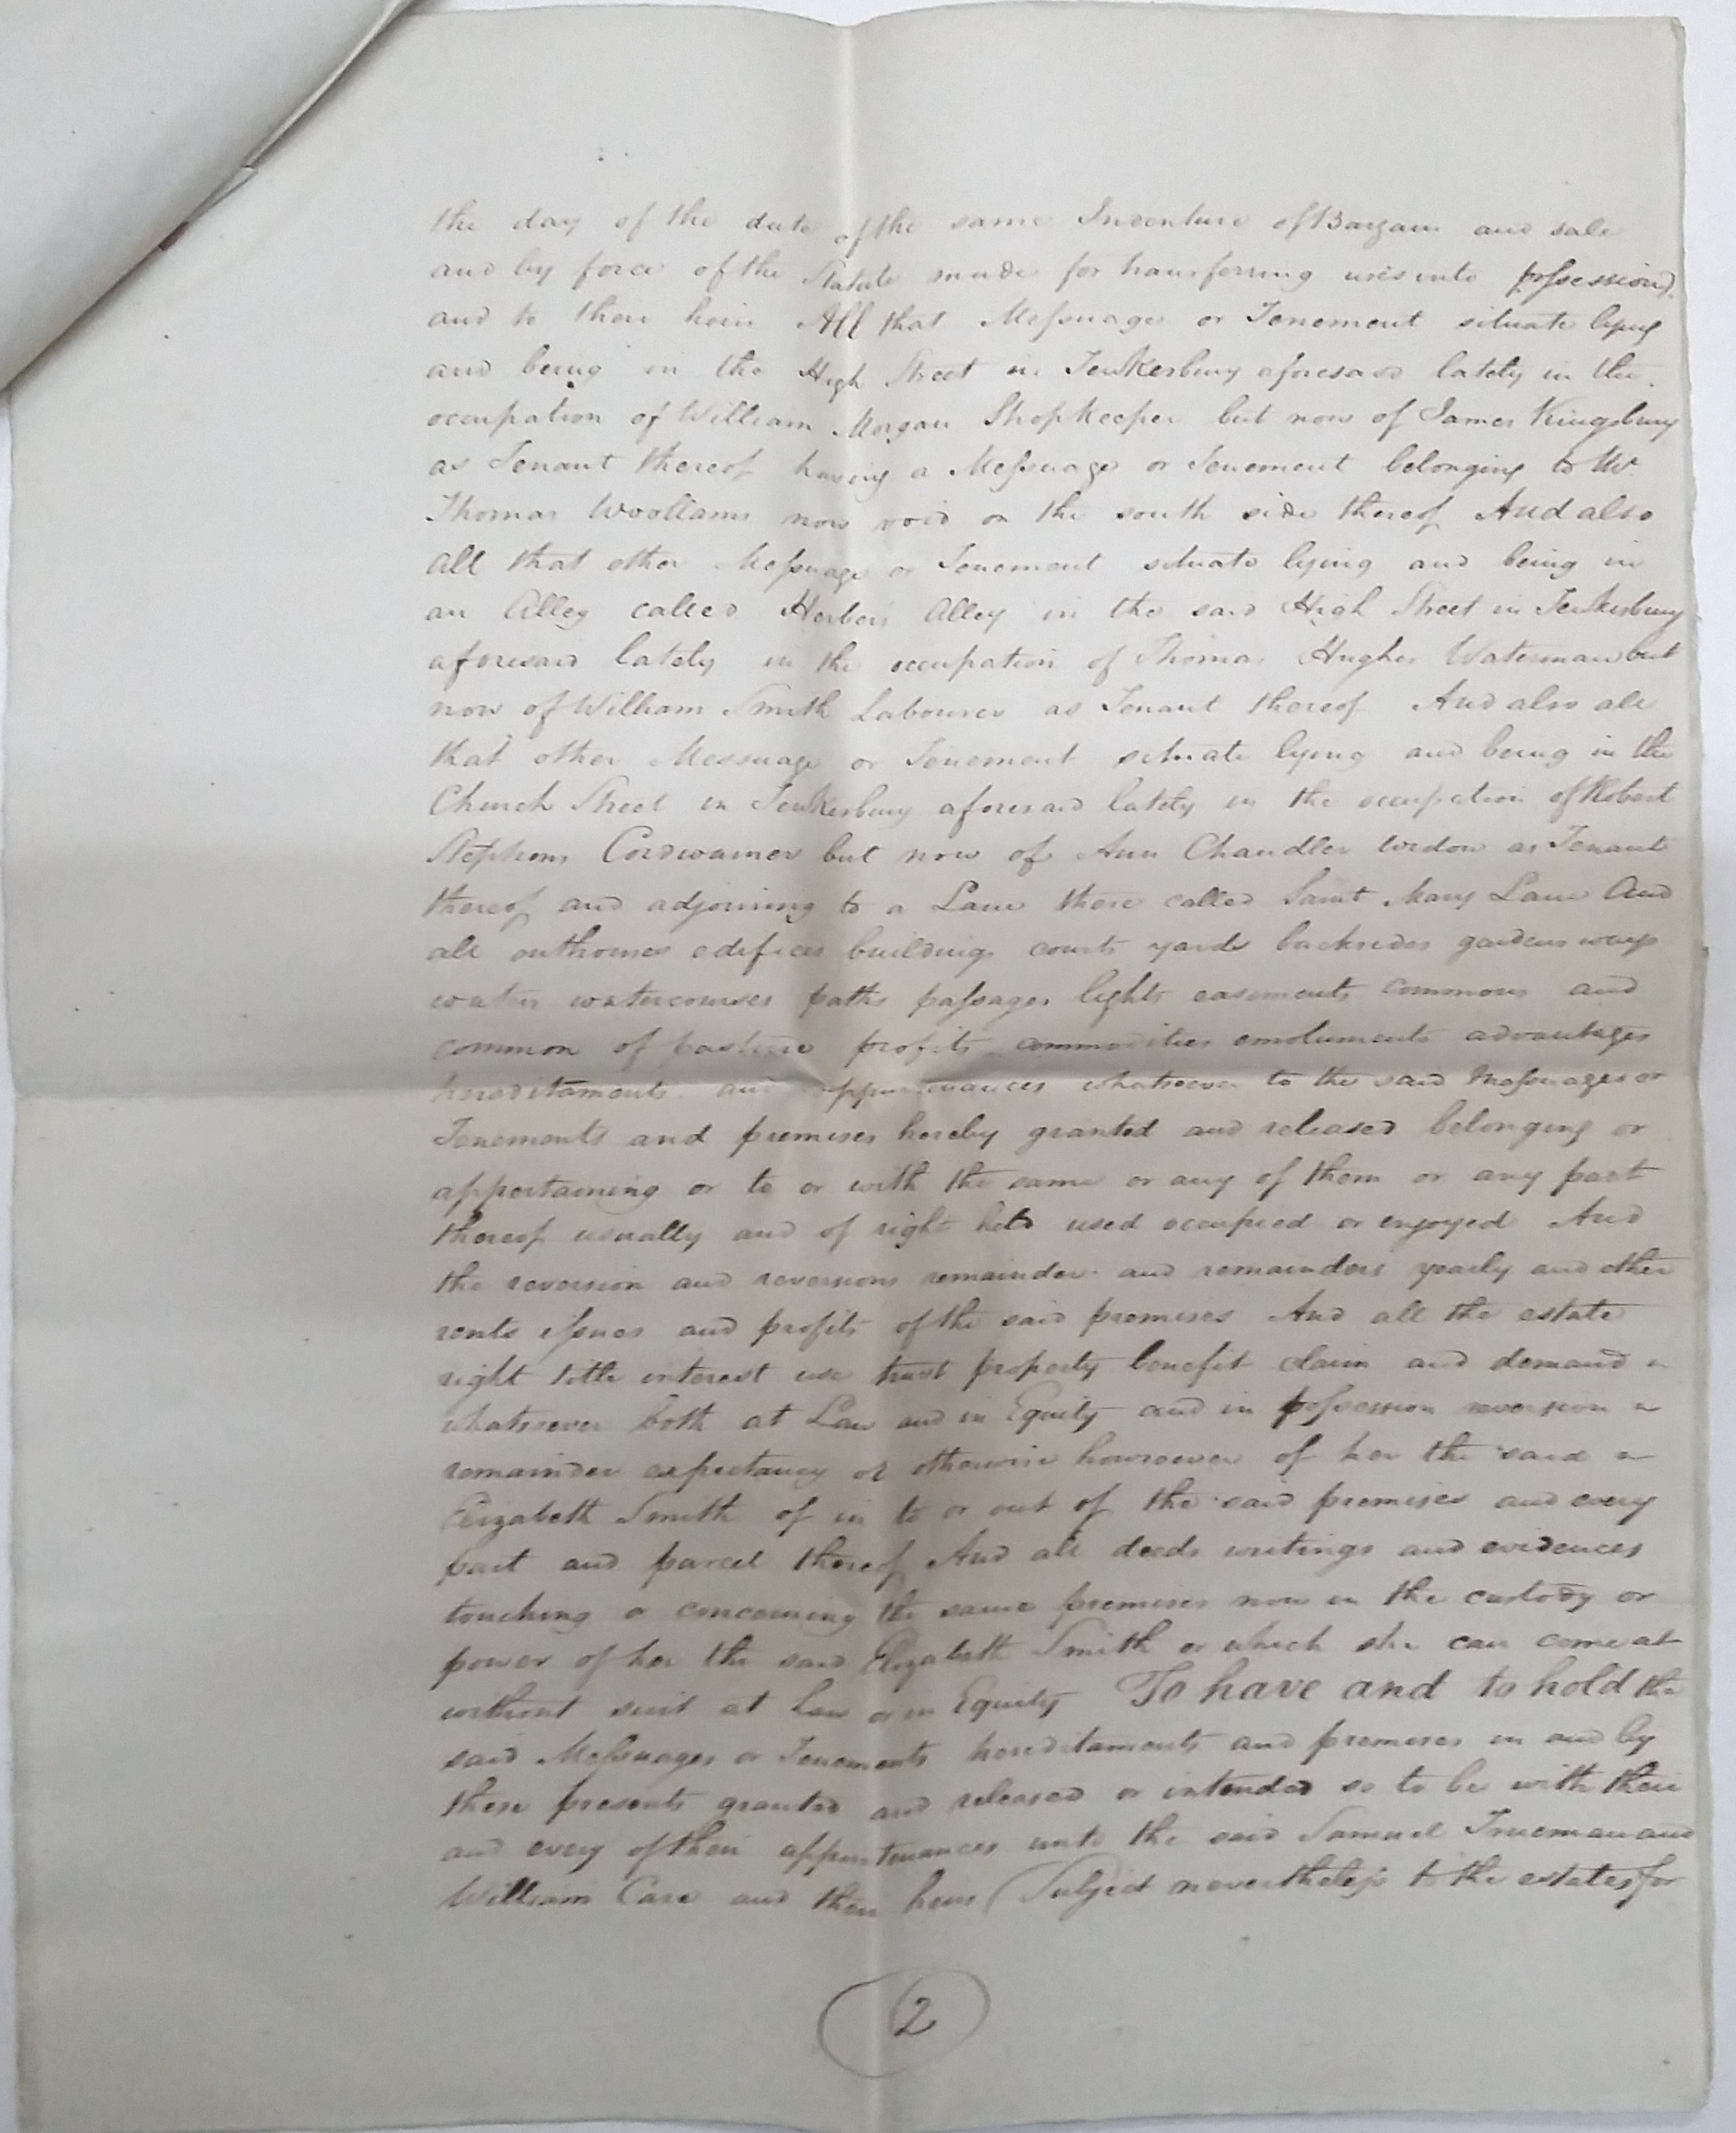 the day of the date of the same Indenture of Bargain and sale
and by force of the Statute made for transferring uses into possession
and to their heirs All that Messuage or Tenement situate lying
and being in the High Street in Tewkesbury aforesaid lately in the
occupation of William Morgan Shopkeeper but now of James Kingsbury
as Tenant thereof having a Messuage or Tenement belonging to Mr.
Thomas Woollams now void on the south side thereof And also
All that other Messuage or Tenement situate lying and being in
an Alley called Alley in the said High Street in Tewkesbury
aforesaid lately in the occupation of Thomas Hughes Waterman but
now of William Smith Labourer as Tenant thereof And also all
that other Messuage or Tenement situate lying and being in the
Church Street in Tewkesbury aforesaid lately in the occupation of Robert
Stephens Cordwainer but now of Ann Chandler Widow as Tenant
thereof and adjoining to a Lane there called Saint Mary Lane And
all outhouses edifices buildings courts yards backsides gardens ways
waters watercourses paths passages lights easements commons and
common of pasture profits commodities emoluments advantages
hereditaments and appurtenances whatsoever to the said Messuages or
Tenements and premises hereby granted and released belonging or
appertaining or to or with the same or any of them or any part
thereof usually and of right held used occupied or enjoyed And
the reversion and reversions remainder and remainders yearly and other
rents issues and profits of the said premises And all the estate
right title interest use trust property benefit claim and demand
whatsoever both at Law and in Equity and in possession reversion
remainder expectancy or otherwise howsoever of her the said
Elizabeth Smith of in to or out of the said premises and every
part and parcel thereof And all deeds writings and evidences
touching or concerning the same premises now in the custody or
power of her the said Elizabeth Smith or which she can come at
without suit at Law or in Equity To have and to hold the
said Messuages or Tenements hereditaments and premises in and by
these presents granted and released or intended so to be with their
and every of their appurtenances unto the said Samuel Trueman and
William Care and their heirs (Subject nevertheless to the estates for
2